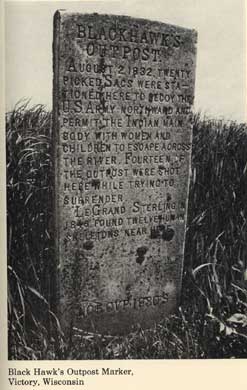 BLACKHAWK'S
OUTPOST
AUGUST 2 1832 TWENTY
PICKED SACS WERE STA-
TIONED HERE TO DECOY THE
U.S. ARMY NORTHWARD AND
PERMIT THE INDIAN MAIN
BODY WITH WOMEN AND
CHILDREN TO ESCAPE ACROSS
THE RIVER. FOURTEEN OF
THE OUTPUT WERE SHOT
HERE WHILE TRYING TO
SURRENDER
LEGRAND STERLING IN
FOUND TWELVE HUMAN
SKELETONS NEAR
Black Hawk's Outpost Marker,
Victory, Wisconsin